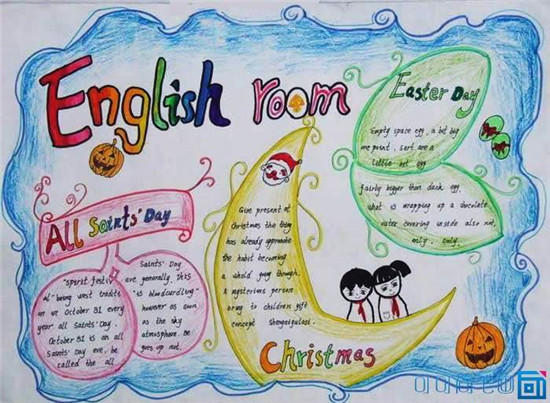 English room
Easter Day
Empty space egg, a bit big
me point, sort are a
little hot egg
fairly bigger than duck egg
what is wrapping up a chocolate,
outer covering inside also not,
only only
All Saints' Day
"spirit festiv
al" being west tradit
on we October 31 every
year all Saints' Day,
October 31 is an all
Saints' Day eve, be
called the all
Saints' Day
are generally this
is bloodcurdling"
however as soon
as the sky
atmosphere. Be
goes up not.
Give present at
Christmas the thing
has already approache
the habit becoming
a whold going though,
a mysterious persone
bring to children gift
concept
Christmas